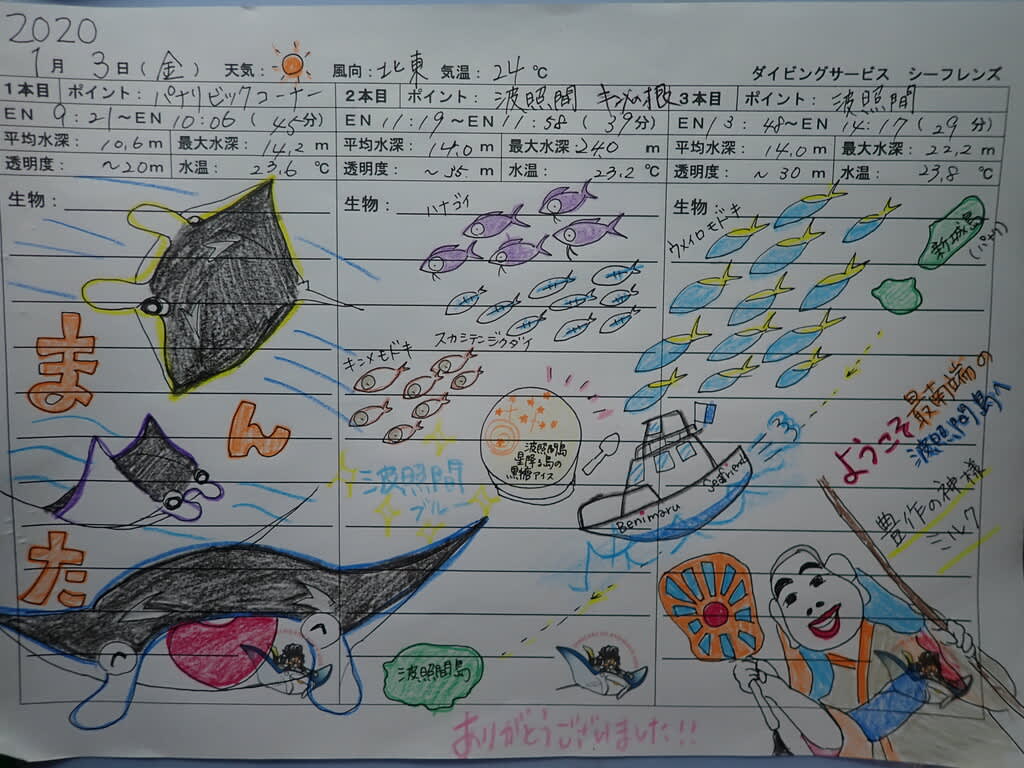 2020
1月 3日(金) 天気: 風向:北東 気温:24℃ ダイビングサービス シーフレンズ
1本目 ポイント: パナリビックコーナー 2本目 ポイント: 波照間 キンメの根 3本目 ポイント: 波照間
EN 9:21~EN 10:06(45分) EN 11:19~EN 11:58(39分) EN 13:48~EN 14:17(29分)
平均水深: 10.6m 最大水深: 14.2m 平均水深: 14.0m 最大水深: 24.0m 平均水深: 14.0m 最大水深: 22.2m
透明度: ~20m 水温: 23.6℃ 透明度: ~35m 水温: 23.2℃ 透明度: ~30m 水温: 23.8℃
生物: 生物: ハナゴイ 生物:
ウメイロモドキ
新城島
(パナリ)
スカシテンジクダイ
キンメモドキ
まんた
波照間島
星降る島の
黒糖アイス
波照間
ブルー
Benimaru
Seafriens
ようこそ最南端の
波照間島へ
豊作の神様
ミルク
波照間島
ありがとうございました!!